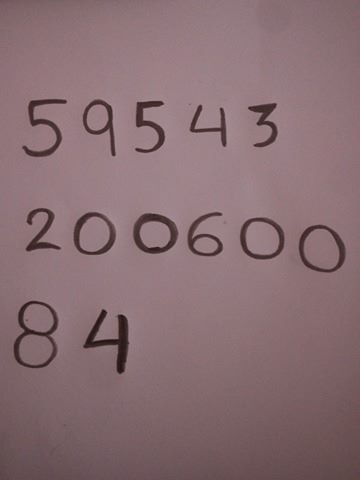 59543
200600
84